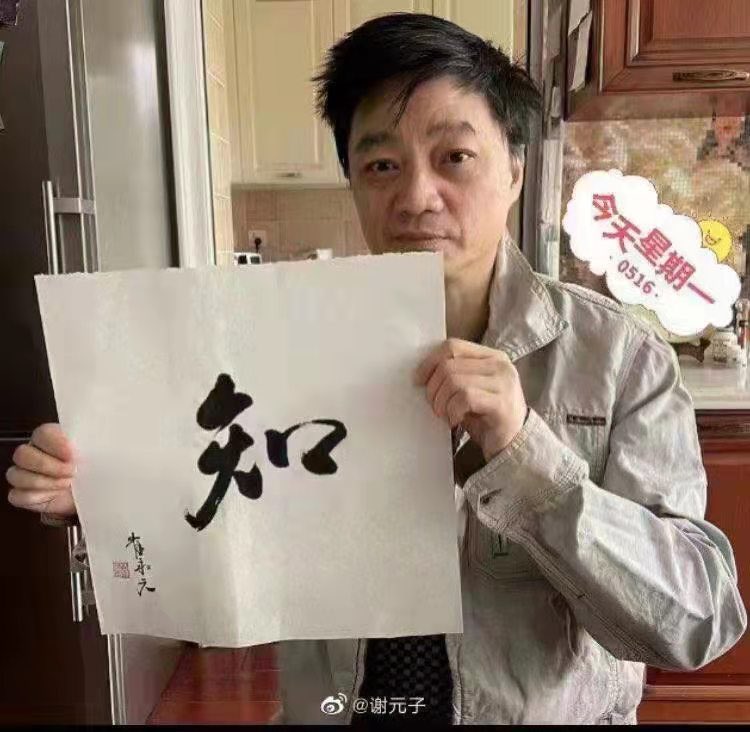 今天星期一
·0516·
知
崔永元
@谢元子